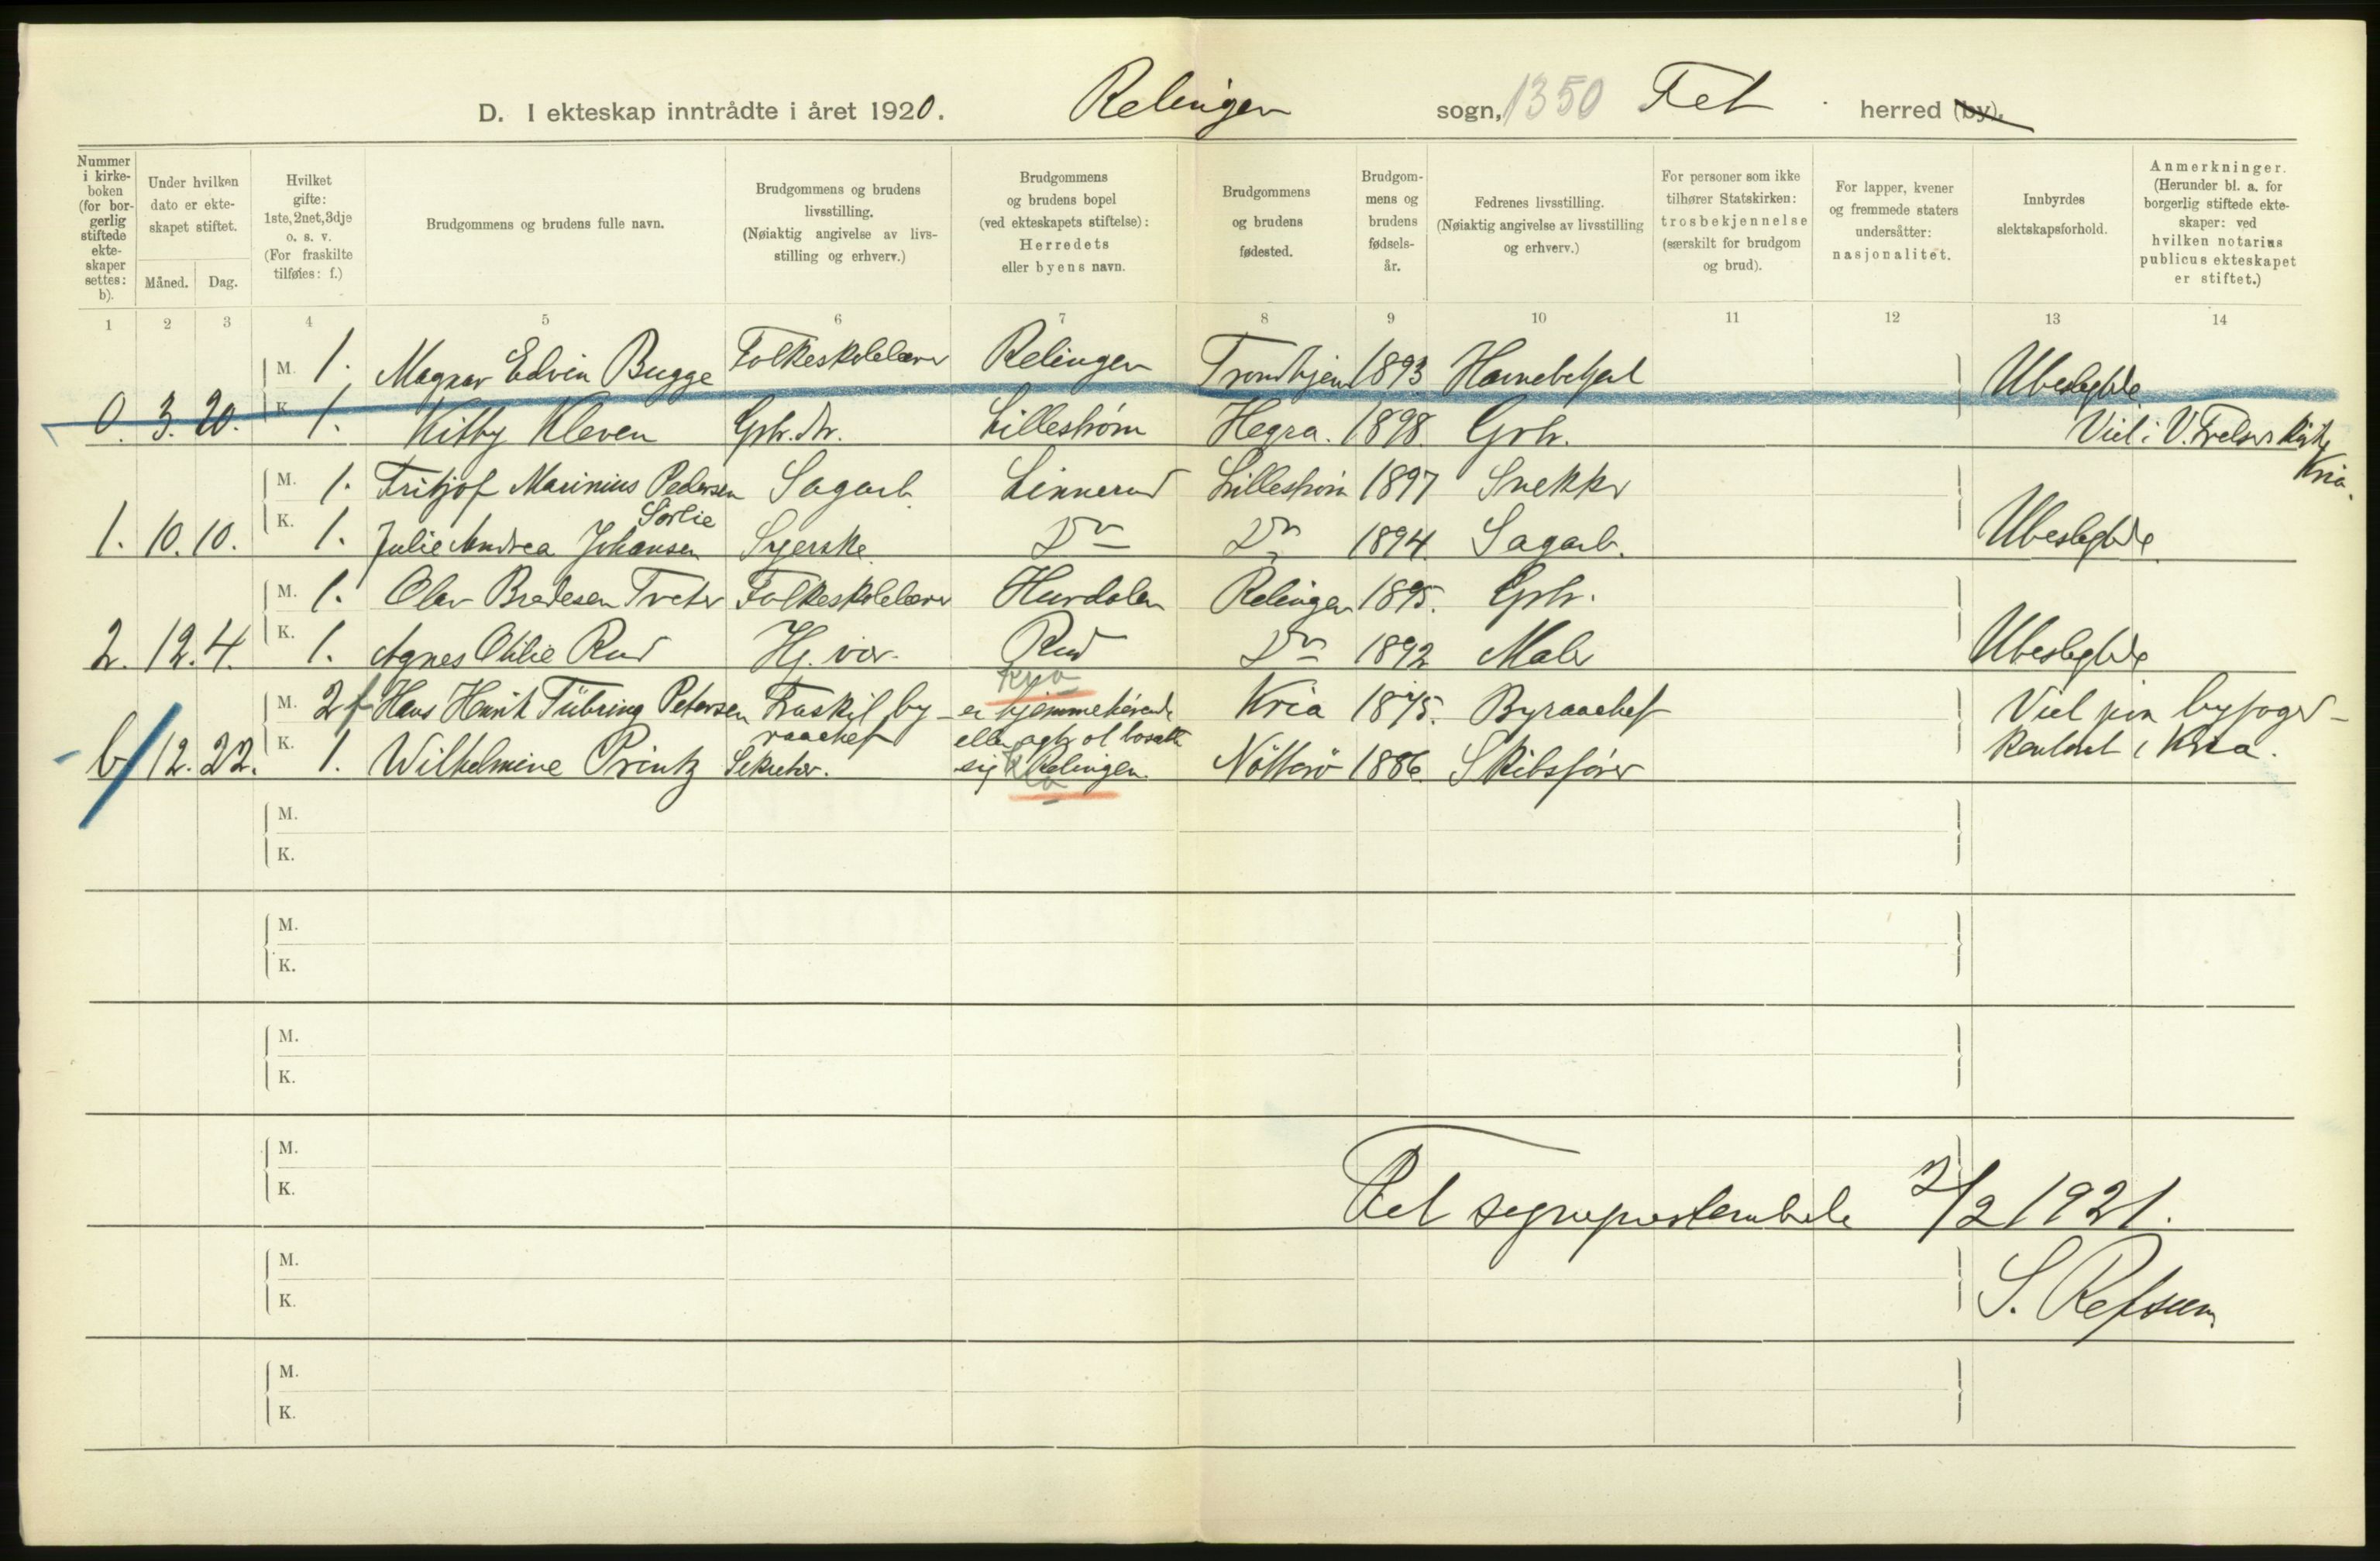 D. I ekteskap inntrådte i året 1920. Relingen sogn, 1350 Fet herred (by).
Nummer i kirkeboken (for borgerlig stiftede ekteskaper settes: b).
Under hvilken dato er ekteskapet stiftet.
Måned. Dag.
Hvilket gifte: 1ste, 2net, 3dje o. s. v. (For fraskilte tilføies: f.)
Brudgommens og brudens fulle navn.
Brudgommens og brudens livsstilling. (Nøiaktig angivelse av livsstilling og erhverv.)
Brudgommens og brudens bopel (ved ekteskapets stiftelse): Herredets eller byens navn.
Brudgommens og brudens fødested.
Brudgommens og brudens fødselsår.
Fedrenes livsstilling. (Nøiaktig angivelse av livsstilling og erhverv.)
For personer som ikke tilhører Statskirken: trosbekjennelse (særskilt for brudgom og brud).
For lapper, kvener og fremmede staters undersåtter: nasjonalitet.
Innbyrdes slektskapsforhold.
Anmerkninger. (Herunder bl. a. for borgerlig stiftede ekteskaper: ved hvilken notarius publicus ekteskapet er stiftet.)
1 2 3 4 5 6 7 8 9 10 11 12 13 14
M. 1. Magnar Edvin Bugge Folkeskolelærer Relingen Trondhjem 1893 Ubeslegtede
0. 3. 20. K. 1. Kitty Kleven Grbr. dtr. Lillestrøm Hegra. 1898. Grbr. Viet i V. Frelsers Kirke
Kria.
M. 1. Fritjof Marinius Pedersen Sagarb. Linnerud Lillestrøm 1897 Snekker
Sørlie
1. 10. 10. K. 1. Julie Andrea Johansen Syerske Do 1894. Sagarb. Ubeslegtede
M. 1. Olav Bredesen Treter Folkeskolelærer Hurdalen Relingen 1895. Grbr.
2. 12. 4. K. 1. Agnes Othilie Rud Hj. vær. Rud Do 1892 Maler Ubeslegtede
Kria
M. 2 f Hans Henrik Tübring Petersen Fraskilt by- er hjemmehörende Kria 1875. Byraachef Viet paa byfoged-
raachef eller agter at bosætte
b/ 12. 22. K. 1. Wilhelmine Printz Sekretær. sig i Relingen. Nötterö 1886. Skibsfører kontoret i Kria.
Kria
M.
K.
M.
K.
M.
K.
M.
K.
Fet sogneprestembede 2/2 1921.
M.
K. S. Refsum
M.
K.